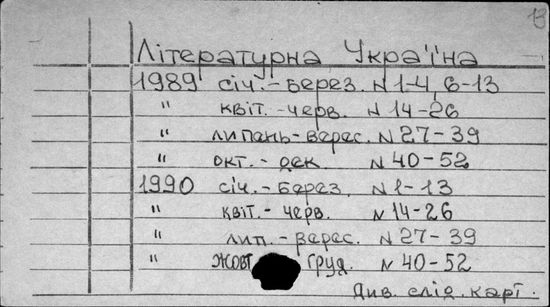 13
Літературна Україна
1989 січ.-берез. N 1-4, 6-13
" квіт.-черв. N 14-26
" липень-верес. N 27-39
" окт.-дек N 40-52
1990 січ.-берез. N 1-13
" квіт.-черв. N 14-26
" лип.-верес. N 27-39
" жовт груд. N 40-52
Див. слід. карт.